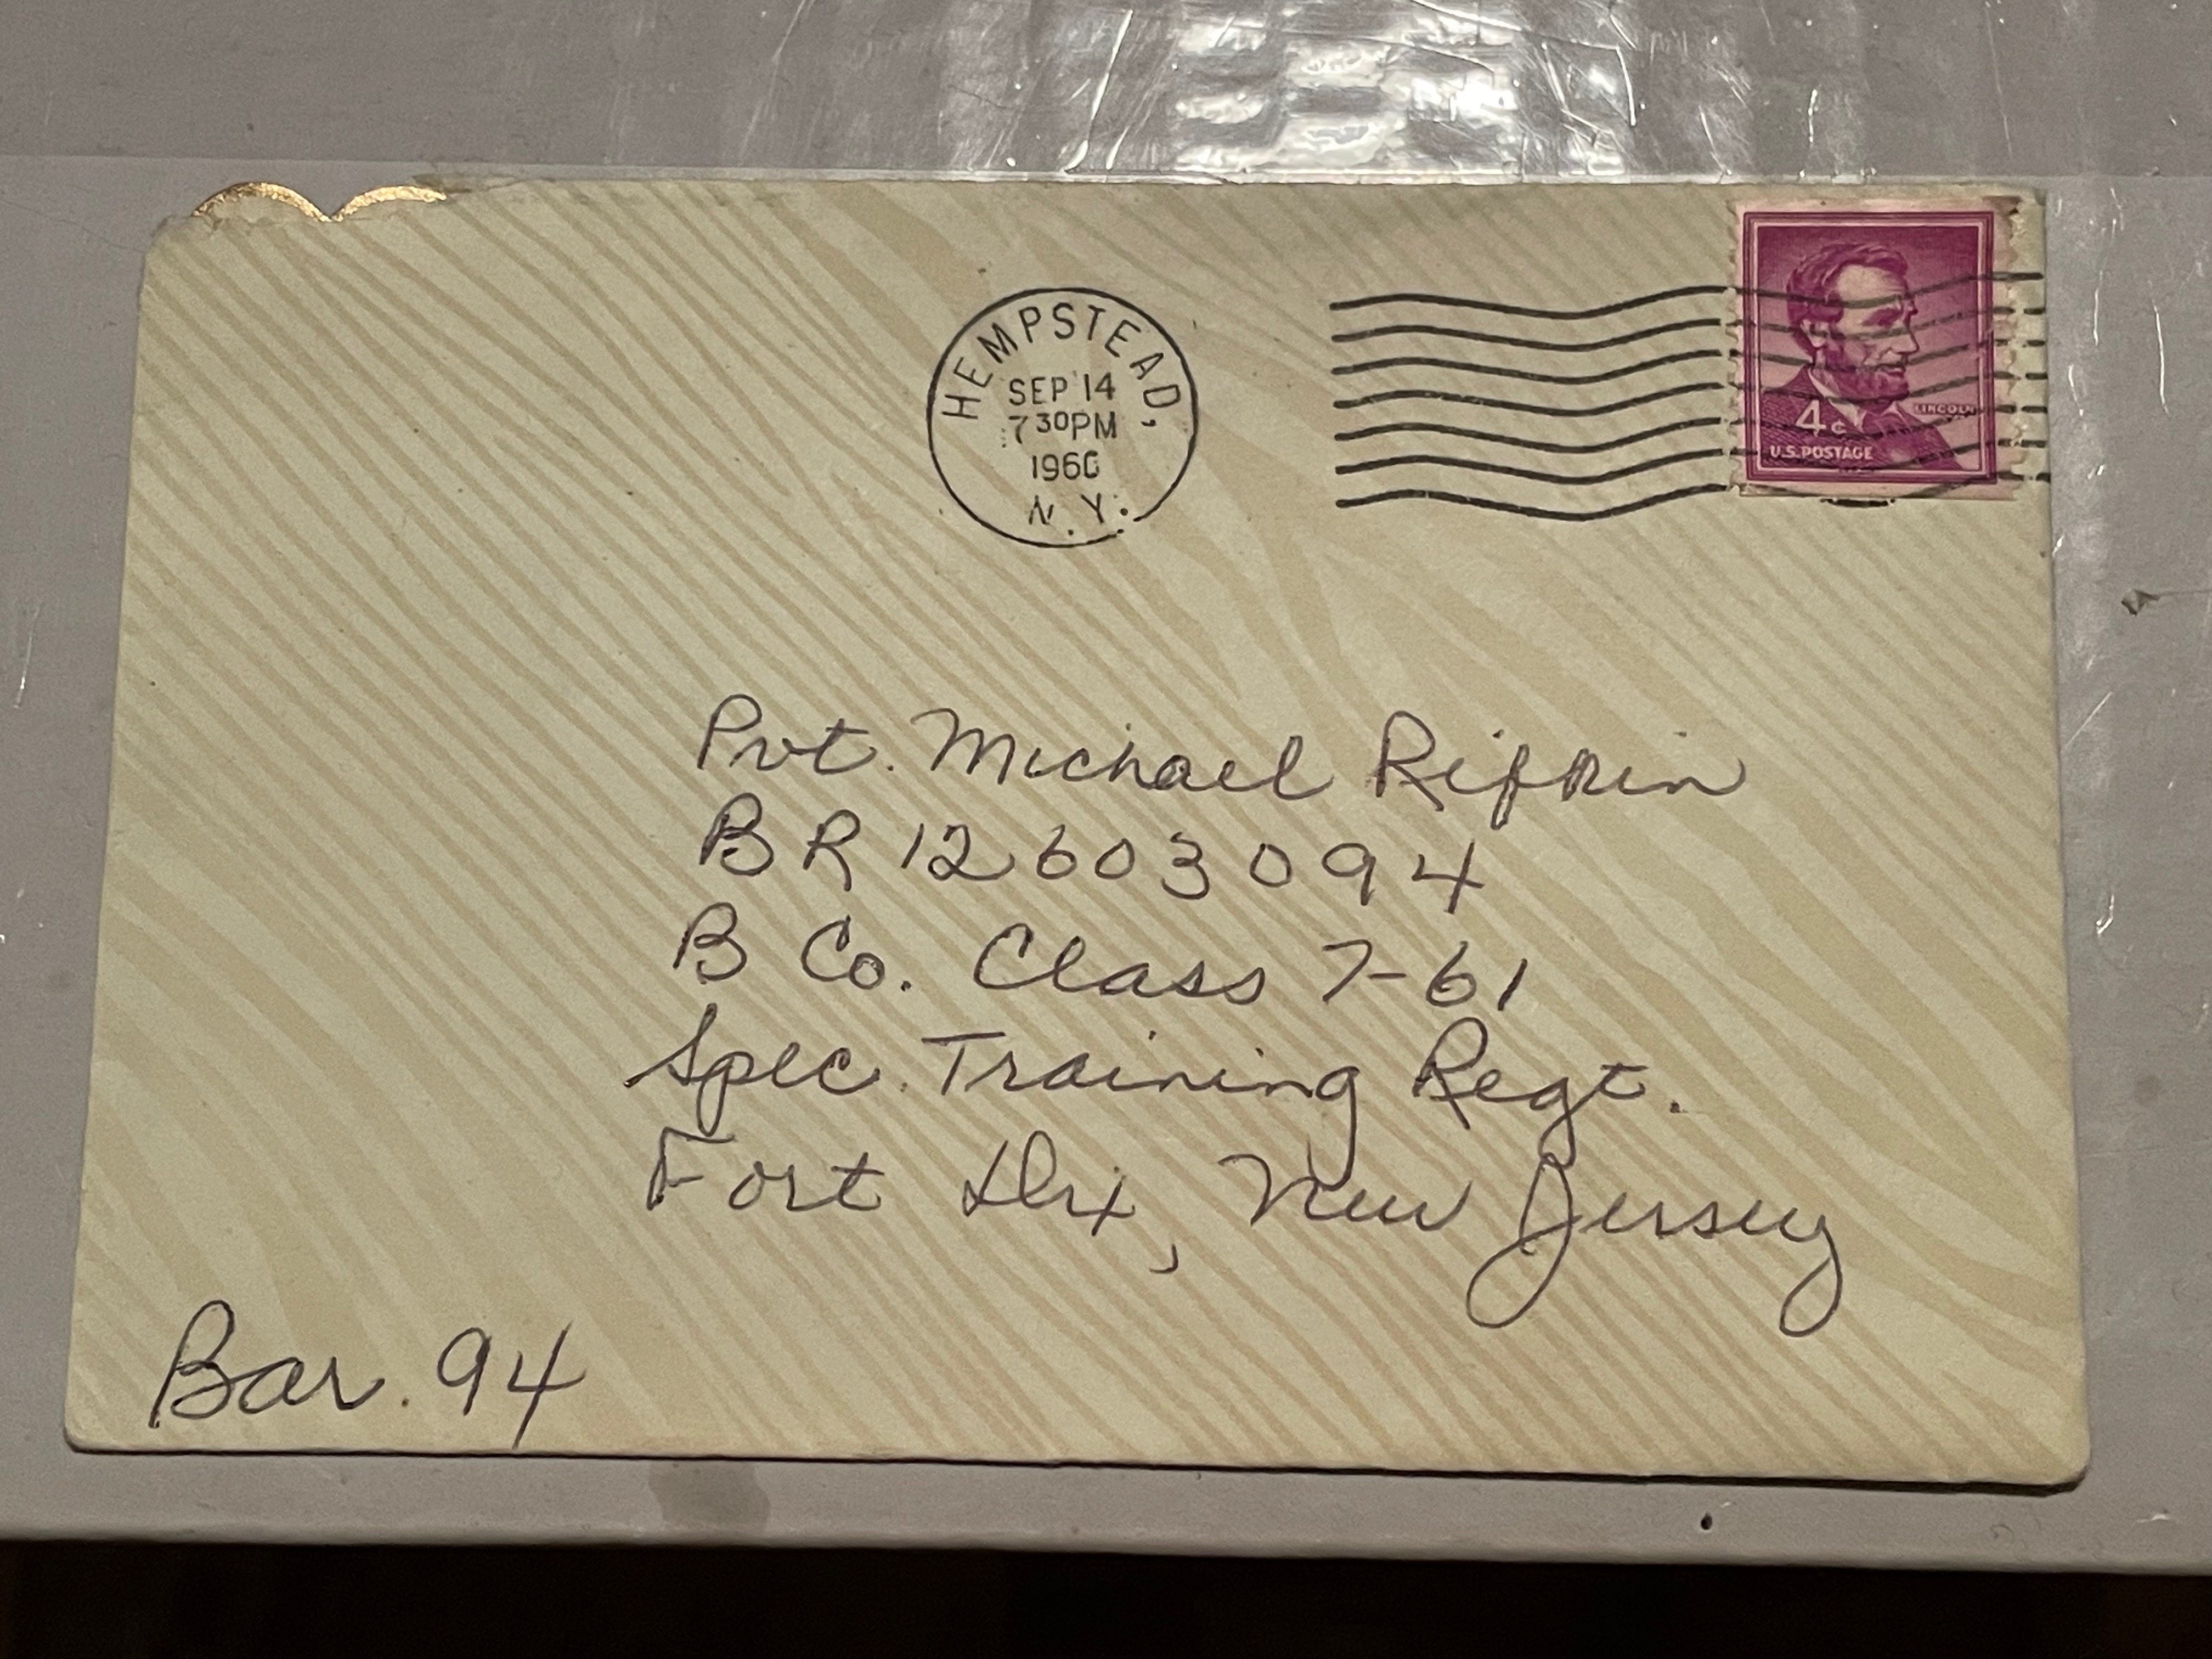 HEMPSTEAD,
SEP 14
7 30PM
1960
N.Y.
LINCOLN
4¢
U.S. POSTAGE
Pvt. Michael Rifkin
BR 12603094
B Co. Class 7-61
Spec. Training Regt.
Fort Dix, New Jersey
Bar. 94